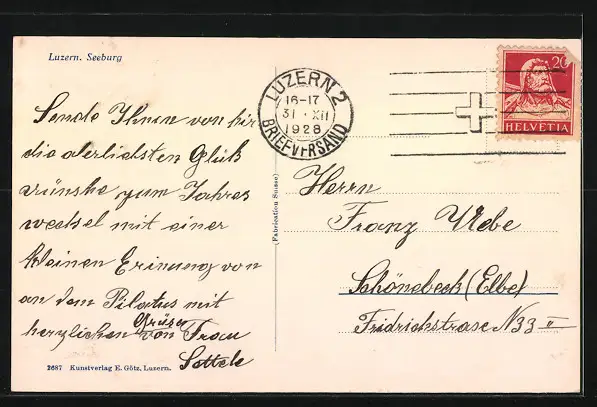 Luzern. Seeburg
LUZERN 2
16-17
31. XII
1928
BRIEFVERSAND
20
HELVETIA
Sende Ihnen von hir
die alerlichsten Glük
wünshe zum Jahres
wechsel mit einer
kleinen Erinnung von
an dem Pilatus mit
herzlichen Grüsen von Frau
(Fabrication Suisse)
Herrn
Franz
Schönebeck (Elbe)
Fridrichstrase N 33 II
2687 Kunstverlag E. Götz, Luzern.